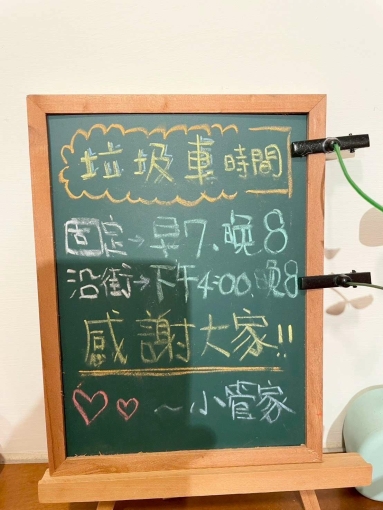 垃圾車時間
固定→早7、晚8
沿街→下午4:00、晚8
感謝大家!!
～小管家